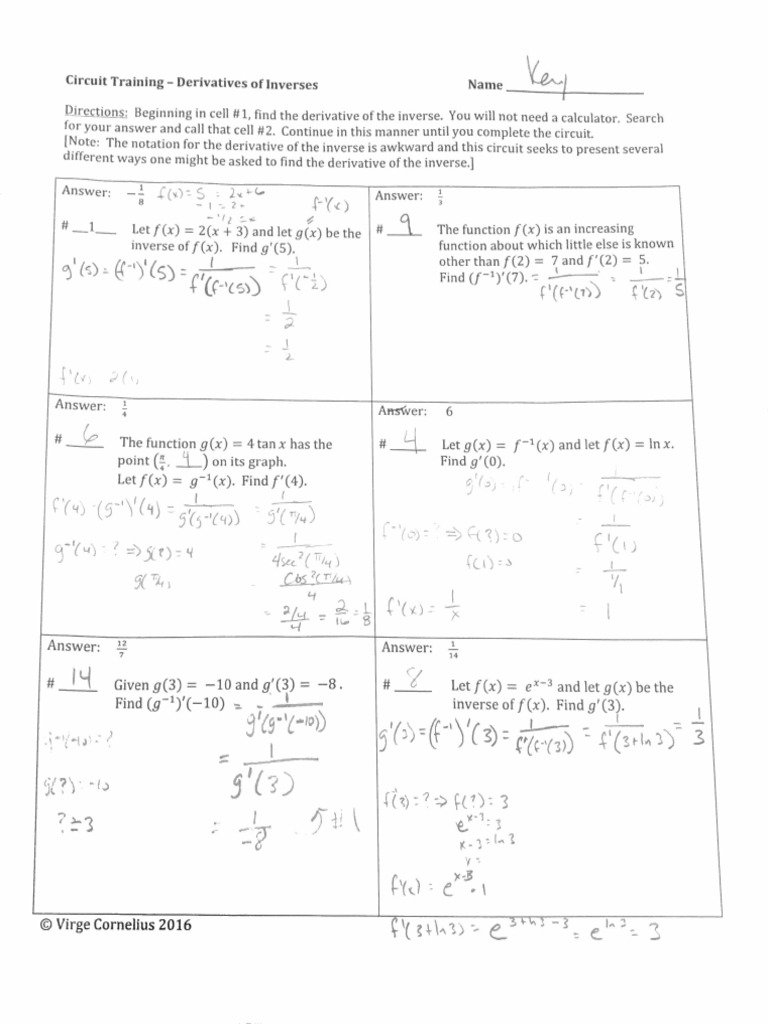 Circuit Training – Derivatives of Inverses Name Key
Directions: Beginning in cell #1, find the derivative of the inverse. You will not need a calculator. Search
for your answer and call that cell #2. Continue in this manner until you complete the circuit.
[Note: The notation for the derivative of the inverse is awkward and this circuit seeks to present several
different ways one might be asked to find the derivative of the inverse.]
Answer: -1/8 f(x)=5 : 2x+6
-1 = 2x
-1/2 = x
f⁻¹(x)
# __1__ Let f(x) = 2(x + 3) and let g(x) be the
inverse of f(x). Find g'(5).
g'(5) = (f⁻¹)'(5) = 1/f'(f⁻¹(5)) = 1/f'(-1/2)
= 1/2
= 1/2
f'(x) 2(1)
Answer: 1/3
# 9 The function f(x) is an increasing
function about which little else is known
other than f(2) = 7 and f'(2) = 5.
Find (f⁻¹)'(7). = 1/f'(f⁻¹(7)) = 1/f'(2) = 1/5
Answer: 1/4
# 6 The function g(x) = 4 tan x has the
point (π/4, 4) on its graph.
Let f(x) = g⁻¹(x). Find f'(4).
f'(4) = (g⁻¹)'(4) = 1/g'(g⁻¹(4)) = 1/g'(π/4)
g⁻¹(4) = ? ⇒ g(?) = 4
g(π/4)
= 1/4sec²(π/4)
= cos²(π/4)/4
= 2/4/4 = 2/16 = 1/8
Answer: 6
# 4 Let g(x) = f⁻¹(x) and let f(x) = ln x.
Find g'(0).
g'(0) = f⁻¹'(0) = 1/f'(f⁻¹(0))
f⁻¹(0) = ? ⇒ f(?) = 0
f(1) = 0
1/f'(1)
= 1/1/1
f'(x) = 1/x
= 1
Answer: 12/7
# 14 Given g(3) = −10 and g'(3) = −8.
Find (g⁻¹)'(−10) = 1/g'(g⁻¹(-10))
g⁻¹(-10) = ?
= 1/g'(3)
g(?) = -10
? = 3
= 1/-8
#1
Answer: 1/14
# 8 Let f(x) = e^(x−3) and let g(x) be the
inverse of f(x). Find g'(3).
g'(3) = (f⁻¹)'(3) = 1/f'(f⁻¹(3)) = 1/f'(3+ln3) = 1/3
f⁻¹(3) = ? ⇒ f(?) = 3
e^(x-3) = 3
x-3 = ln3
x =
f'(x) = e^(x-3) · 1
© Virge Cornelius 2016
f'(3+ln3) = e^(3+ln3-3) = e^(ln3) = 3